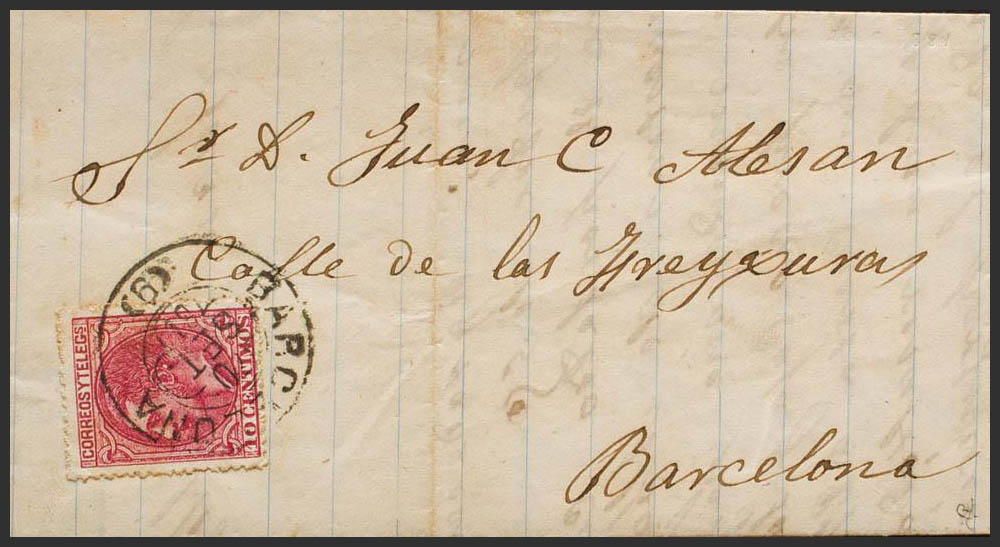 Sr D. Juan C Alesan
Calle de las Freyxuras
Barcelona
CORREOS Y TELEGS
10 CENTIMOS
BARCELONA
(B)